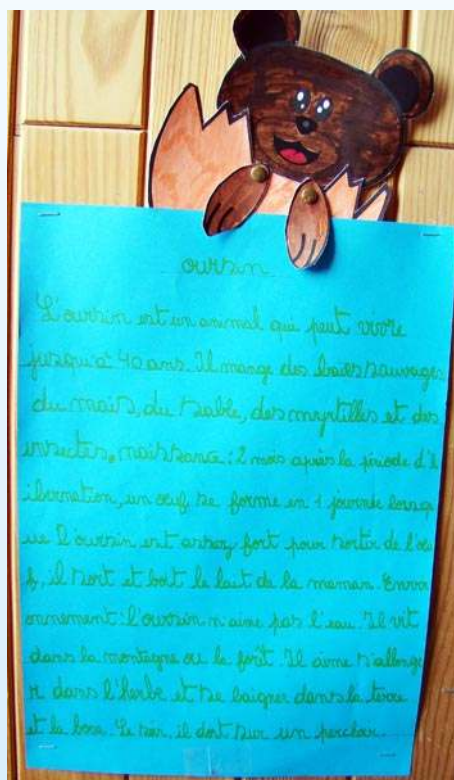 oursin
L'oursin est un animal qui peut vivre
jusqu'à 40 ans. Il mange des baies sauvages
du maïs, du sable, des myrtilles et des
insectes, naissance : 2 mois après la période d'h
ibernation, un oeuf se forme en 1 journée lorsq
ue l'oursin est assez fort pour sortir de l'oeu
f, il sort et boit le lait de la maman. Envir
onnement : l'oursin n'aime pas l'eau. Il vit
dans la montagne ou la forêt. Il aime s'allonge
r dans l'herbe et se baigner dans la terre
et la boue. Le soir, il dort sur un perchoir.